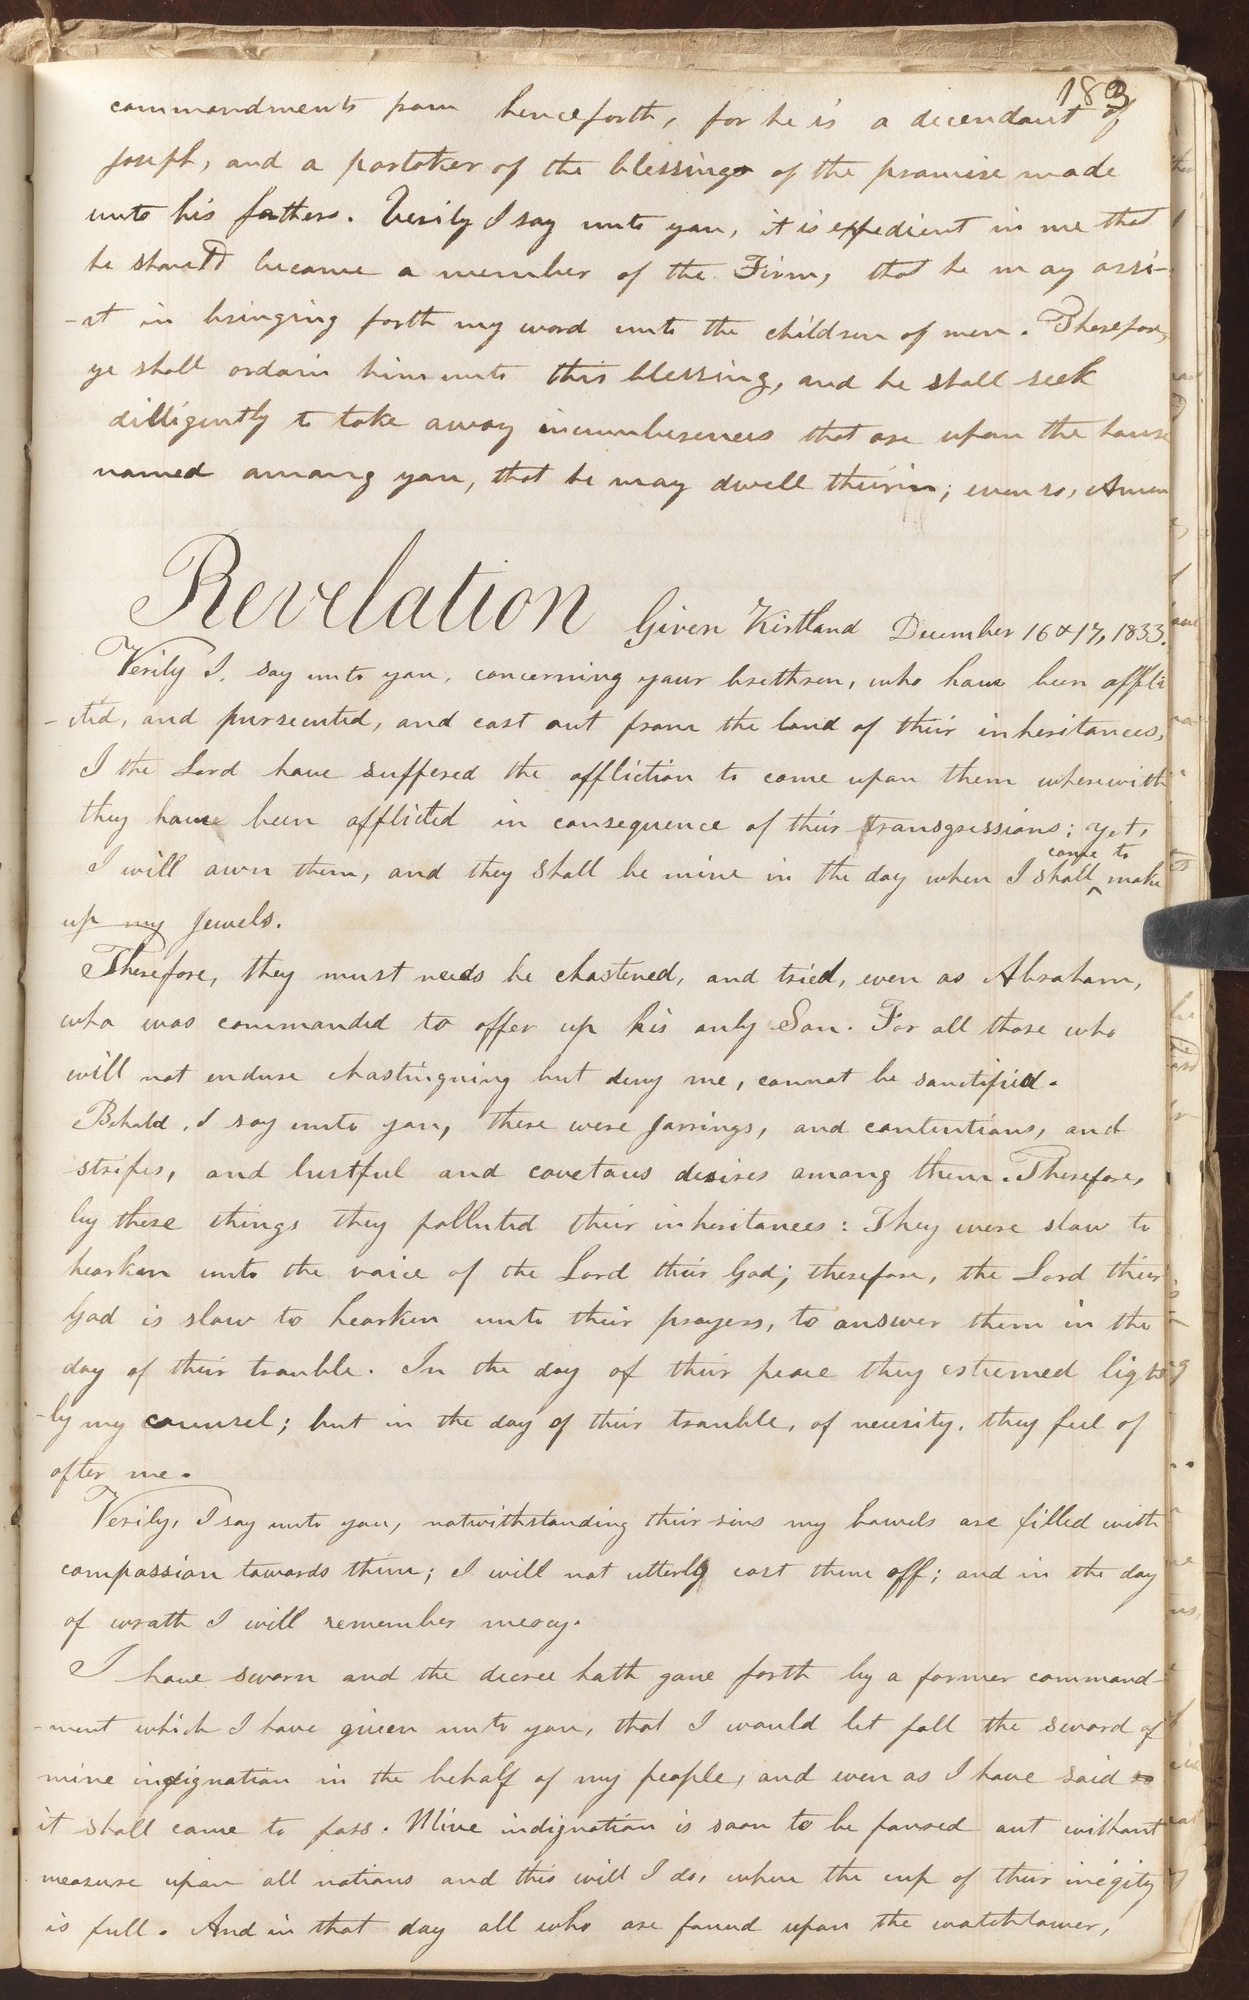 183
commandments from henceforth, for he is a decendant of
Joseph, and a partaker of the blessings of the promise made
unto his fathers. Verily I say unto you, it is expedient in me that
he should become a member of the Firm, that he may assi-
-st in bringing forth my word unto the children of men. Therefore,
ye shall ordain him unto this blessing, and he shall seek
dilligently to take away incumberences that are upon the house
named among you, that he may dwell therein; even so, Amen
Revelation Given Kirtland December 16 & 17, 1833.
Verily I, say unto you, concerning your brethren, who have been affli
-cted, and pursecuted, and cast out from the land of their inheritances,
I the Lord have suffered the affliction to come upon them wherewith
they have been afflicted in consequence of their transgressions; yet,
come to
I will own them, and they shall be mine in the day when I shall ^ make
up my Jewels.
Therefore, they must needs be chastened, and tried, even as Abraham,
who was commanded to offer up his only Son. For all those who
will not endure chastingning but deny me, cannot be sanctified.
Behold, I say unto you, there were Jarrings, and contentions, and
strifes, and lustful and covetous desires among them. Therefore,
by these things they polluted their inheritances: They were slow to
hearken unto the voice of the Lord their God; therefore, the Lord their
God is slow to hearken unto their prayers, to answer them in the
day of their trouble. In the day of their peace they esteemed light
-ly my counsel; but in the day of their trouble, of necesity, they feel of
after me.
Verily, I say unto you, notwithstanding their sins my bowels are filled with
compassion towards them; I will not utterly cast them off; and in the day
of wrath I will remember mercy.
I have sworn and the decree hath gone forth by a former command-
-ment which I have given unto you, that I would let fall the sword of
mine indignation in the behalf of my people, and even as I have said so
it shall come to pass. Mine indignation is soon to be poured out without
measure upon all nations and this will I do, when the cup of their iniqity
is full. And in that day all who are found upon the watchtower,